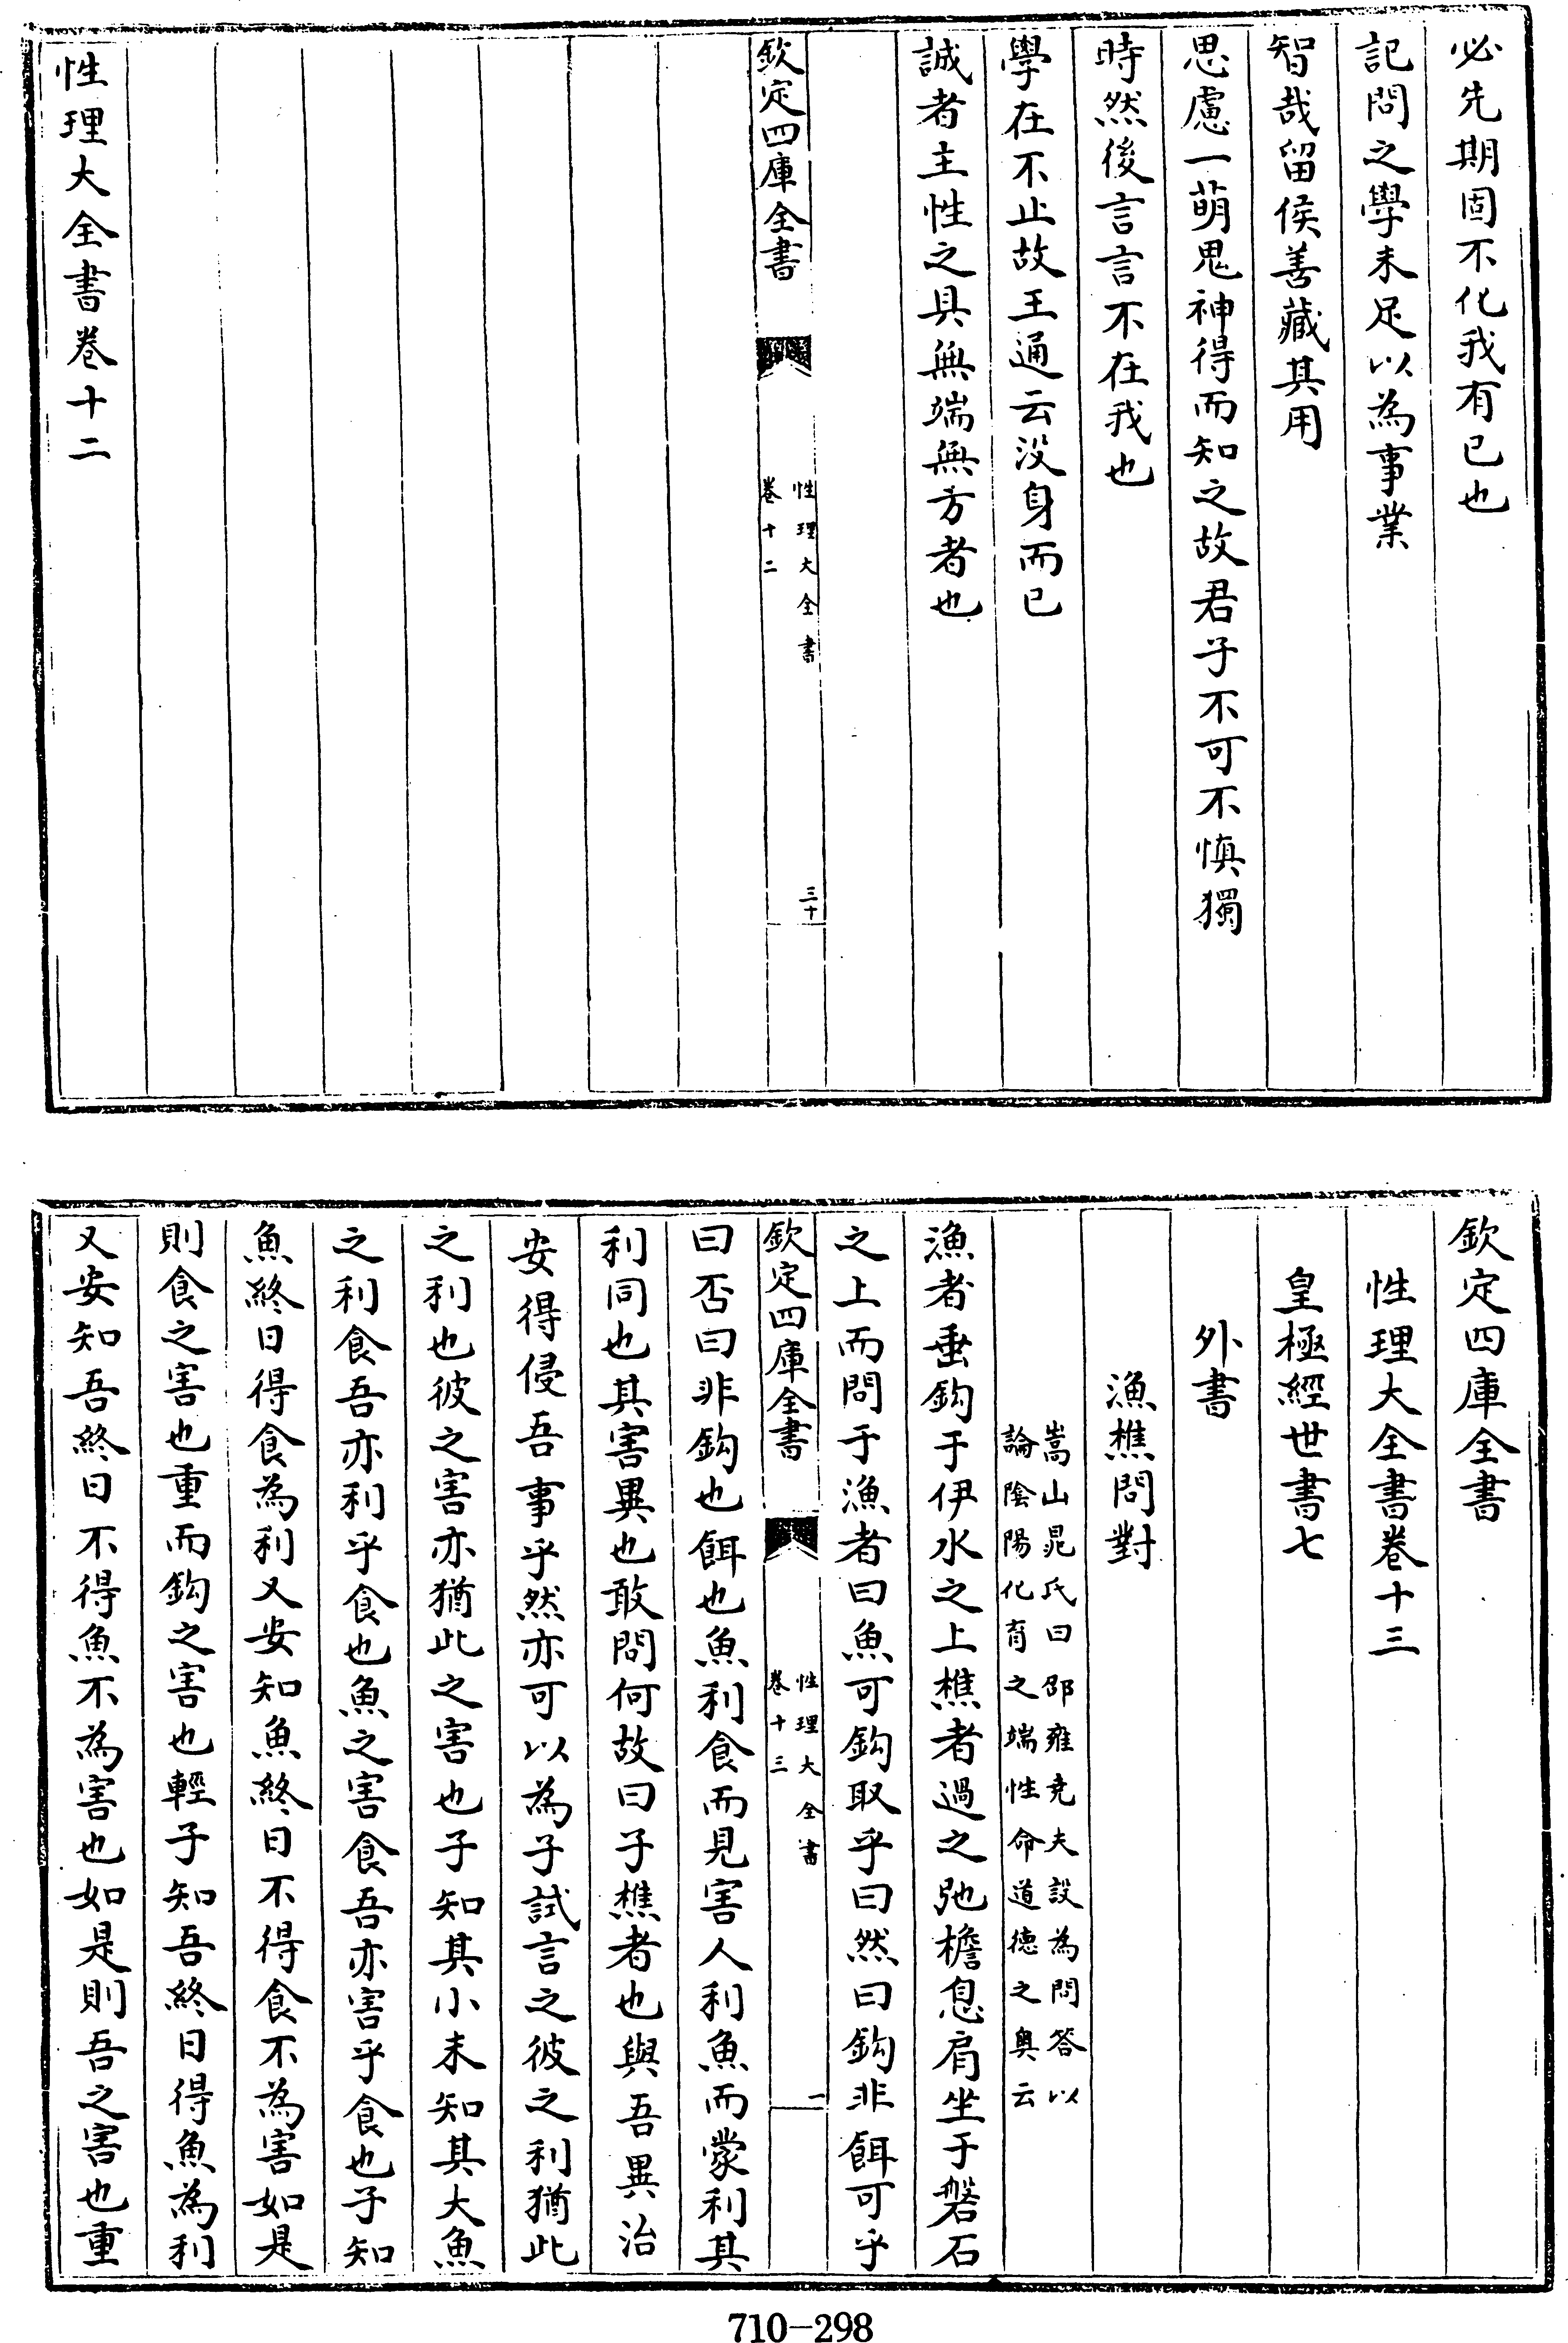 必先期固不化我有已也
記問之學未足以為事業
智哉留侯善藏其用
思慮一萌鬼神得而知之故君子不可不慎獨
時然後言言不在我也
學在不止故王通云没身而已
誠者主性之具無端無方者也
欽定四庫全書
性理大全書
卷十二
三十
性理大全書卷十二
欽定四庫全書
性理大全書卷十三
皇極經世書七
外書
漁樵問對
嵩山晁氏曰邵雍堯夫設為問答以
論陰陽化育之端性命道德之奥云
漁者垂鈎于伊水之上樵者過之弛檐息肩坐于磐石
之上而問于漁者曰魚可鈎取乎曰然曰鈎非餌可乎
欽定四庫全書
性理大全書
卷十三
一
曰否曰非鈎也餌也魚利食而見害人利魚而蒙利其
利同也其害異也敢問何故曰子樵者也與吾異治
安得侵吾事乎然亦可以為子試言之彼之利猶此
之利也彼之害亦猶此之害也子知其小未知其大魚
之利食吾亦利乎食也魚之害食吾亦害乎食也子知
魚終日得食為利又安知魚終日不得食不為害如是
則食之害也重而鈎之害也輕子知吾終日得魚為利
又安知吾終日不得魚不為害也如是則吾之害也重
710-298